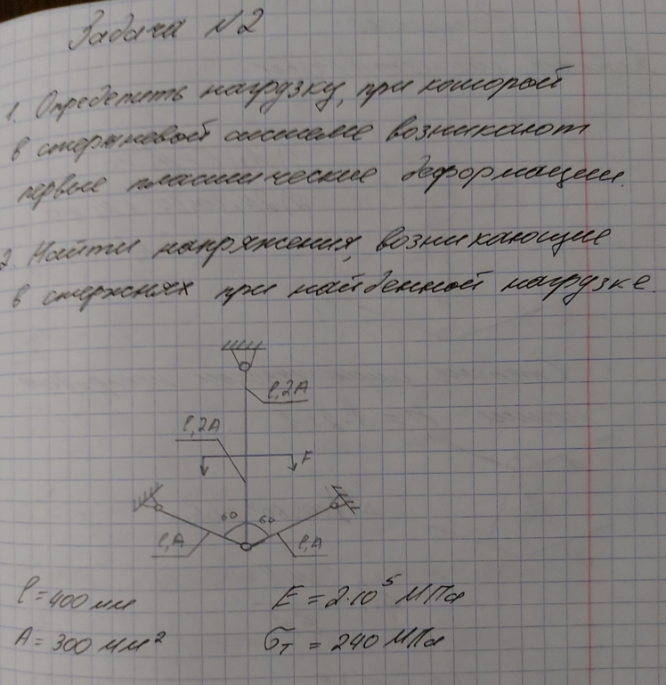 Задача №2
1. Определить нагрузку, при которой
в стержневой системе возникают
первые пластические деформации.
2. Найти напряжения, возникающие
в стержнях при найденной нагрузке.
l, 2A
l, 2A
F
60 60
l, A l, A
l = 400 мм E = 2·10⁵ МПа
A = 300 мм² σт = 240 МПа